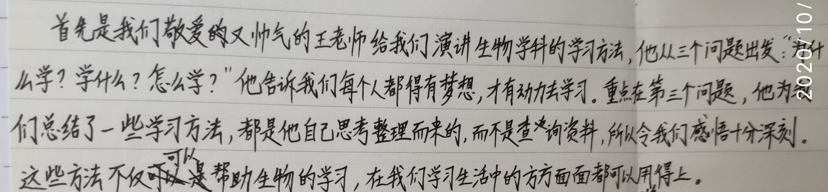 首先是我们敬爱的又帅气的王老师给我们演讲生物学科的学习方法,他从三个问题出发:“为什
么学?学什么?怎么学?”他告诉我们每个人都得有梦想,才有动力去学习。重点在第三个问题,他为我
们总结了一些学习方法,都是他自己思考整理而来的,而不是查询资料,所以令我们感悟十分深刻。
这些方法不仅可以是帮助生物的学习,在我们学习生活中的方方面面都可以用得上。
2020/10/